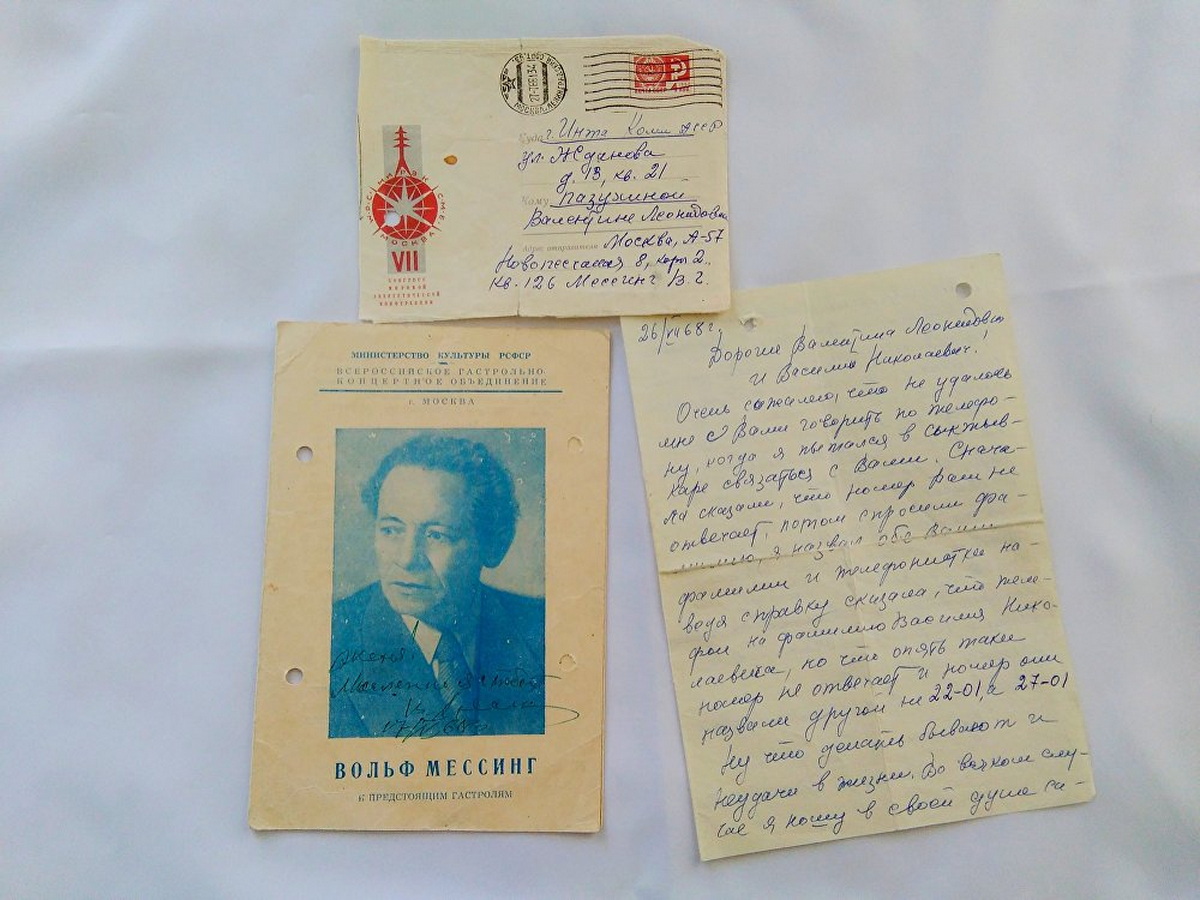 МОСКВА
27-7-68 1374
4
МИРЭК
МОСКВА
VII
КОНГРЕСС
МИРОВОЙ
ЭНЕРГЕТИЧЕСКОЙ
КОНФЕРЕНЦИИ
Куда г. Инта Коми АССР
ул. Жданова
д. 13, кв. 21
Кому
Валентине Леонидовне
Адрес отправителя Москва, А-57
Новопесчаная 8, корп 2.
кв. 126 Мессинг В. Г.
МИНИСТЕРСТВО КУЛЬТУРЫ РСФСР
ВСЕРОССИЙСКОЕ ГАСТРОЛЬНО-
КОНЦЕРТНОЕ ОБЪЕДИНЕНИЕ
г. МОСКВА
ВОЛЬФ МЕССИНГ
К ПРЕДСТОЯЩИМ ГАСТРОЛЯМ
26/VII 68 г.
Дорогие Валентина Леонидовна
и Василий Николаевич!
Очень сожалею, что не удалось
мне с Вами говорить по телефо-
ну, когда я пытался в Сыктыв-
каре связаться с Вами. Снача-
ла сказали, что номер Ваш не
отвечает, потом спросили фа-
милию, я назвал обе Ваши
фамилии и телефонистка на-
ведя справку сказала, что теле-
фон на фамилию Василия Нико-
лаевича, но что опять таки
номер не отвечает и номер они
назвали другой не 22-01, а 27-01
Ну что делать бывают и
неудачи в жизни. Во всяком слу-
чае я ношу в своей душе са-